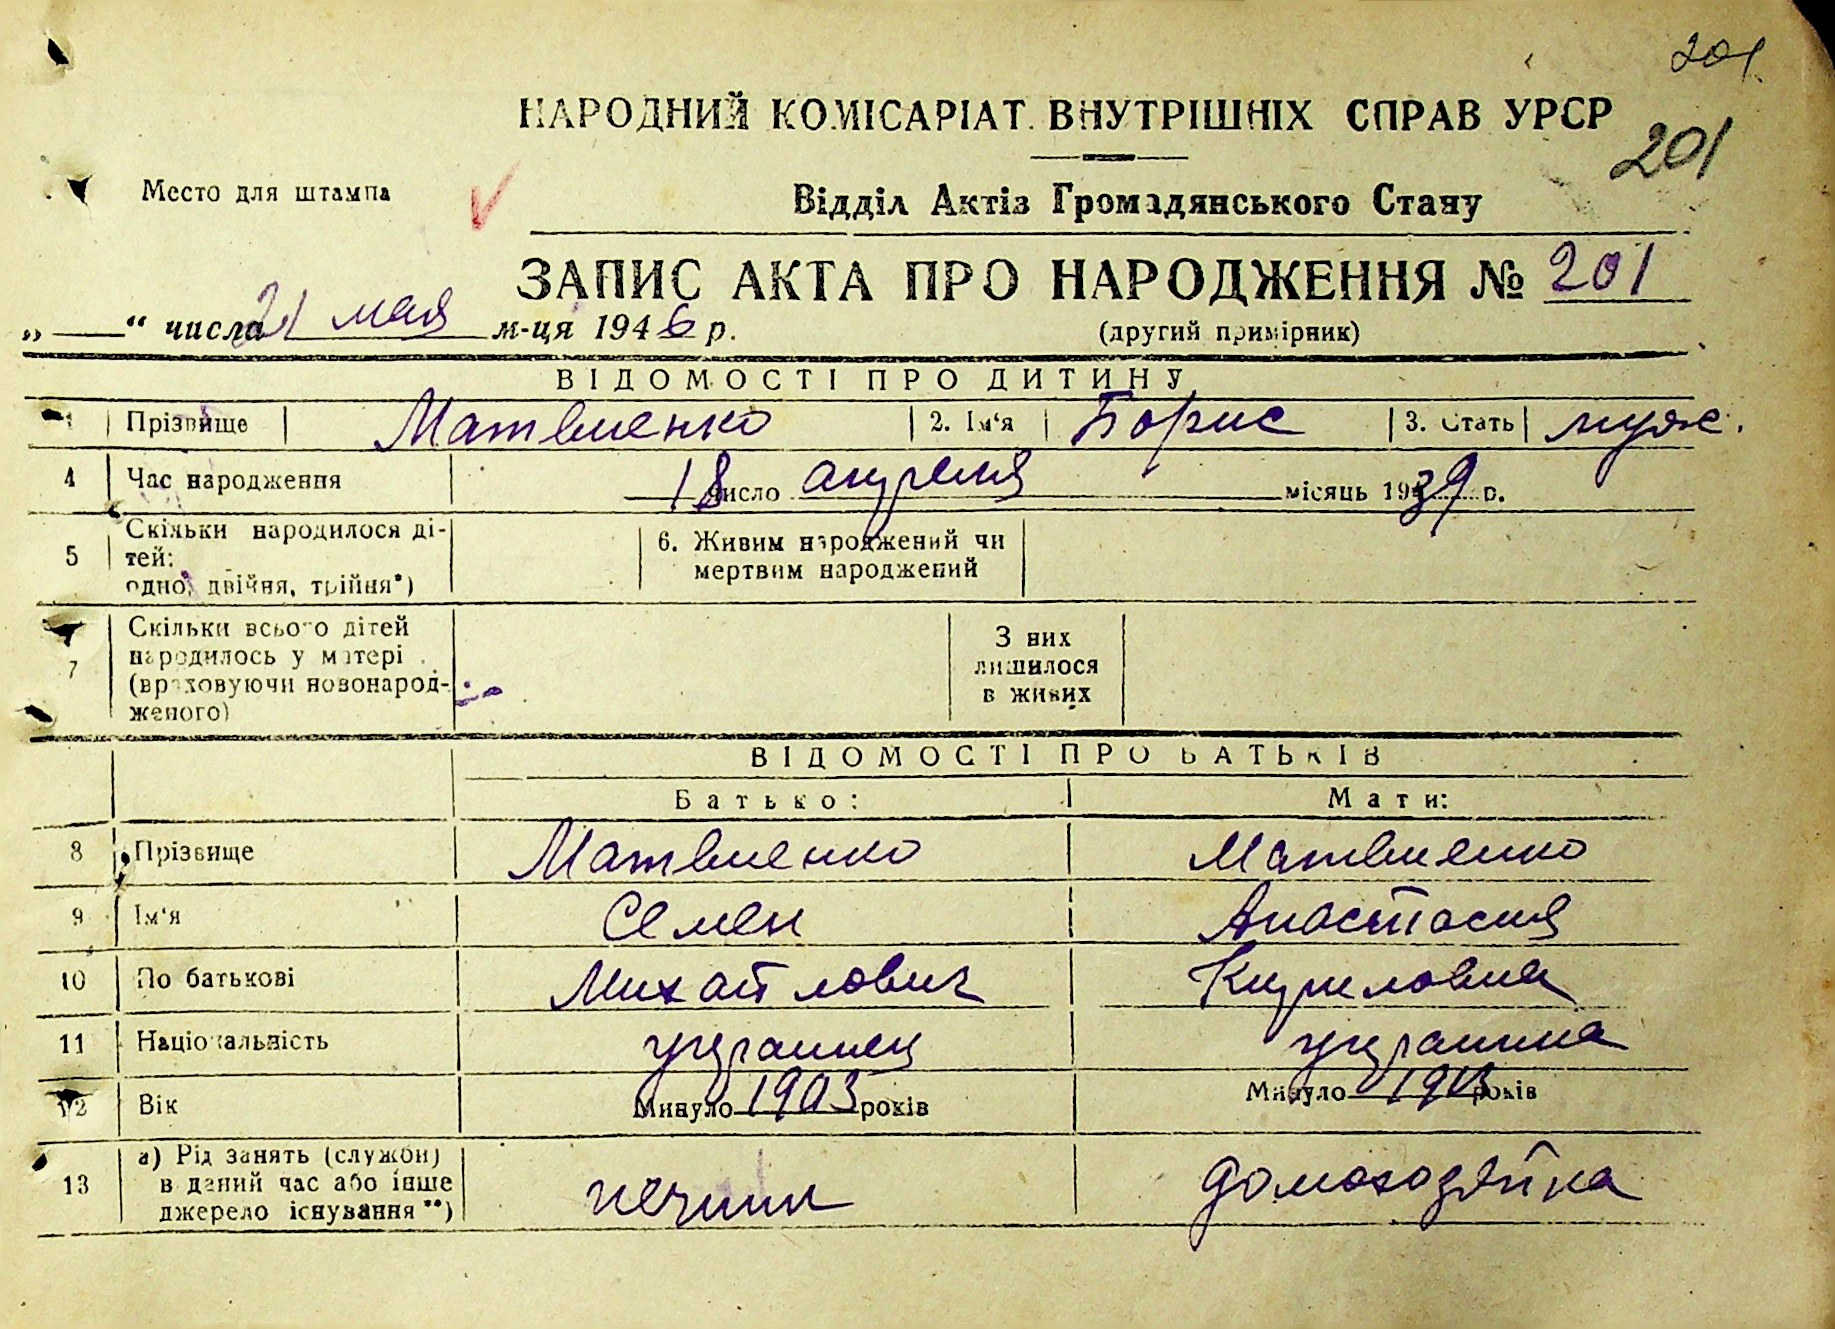 201.
НАРОДНИЙ КОМІСАРІАТ ВНУТРІШНІХ СПРАВ УРСР
201
Место для штампа
Відділ Актів Громадянського Стану
ЗАПИС АКТА ПРО НАРОДЖЕННЯ № 201
„ — “ числа 21 мая м-ця 1946 р.
(другий примірник)
ВІДОМОСТІ ПРО ДИТИНУ
1 Прізвище Матвиенко 2. Ім‘я Борис 3. Стать муж.
4 Час народження 18 число апреля місяць 1939 р.
5 Скільки народилося ді-
тей:
одно, двійня, трійня*)
6. Живим народжений чи
мертвим народжений
7 Скільки всього дітей
народилось у матері
(враховуючи новонарод-
женого)
З них
лишилося
в живих
ВІДОМОСТІ ПРО БАТЬКІВ
Батько: Мати:
8 Прізвище Матвиенко Матвиенко
9 Ім‘я Семен Анастасия
10 По батькові Михайлович Кириловна
11 Національність украинец украинка
12 Вік Минуло 1903 років Минуло 1913 років
13 а) Рід занять (служби)
в даний час або інше
джерело існування**)
печник домохозяйка